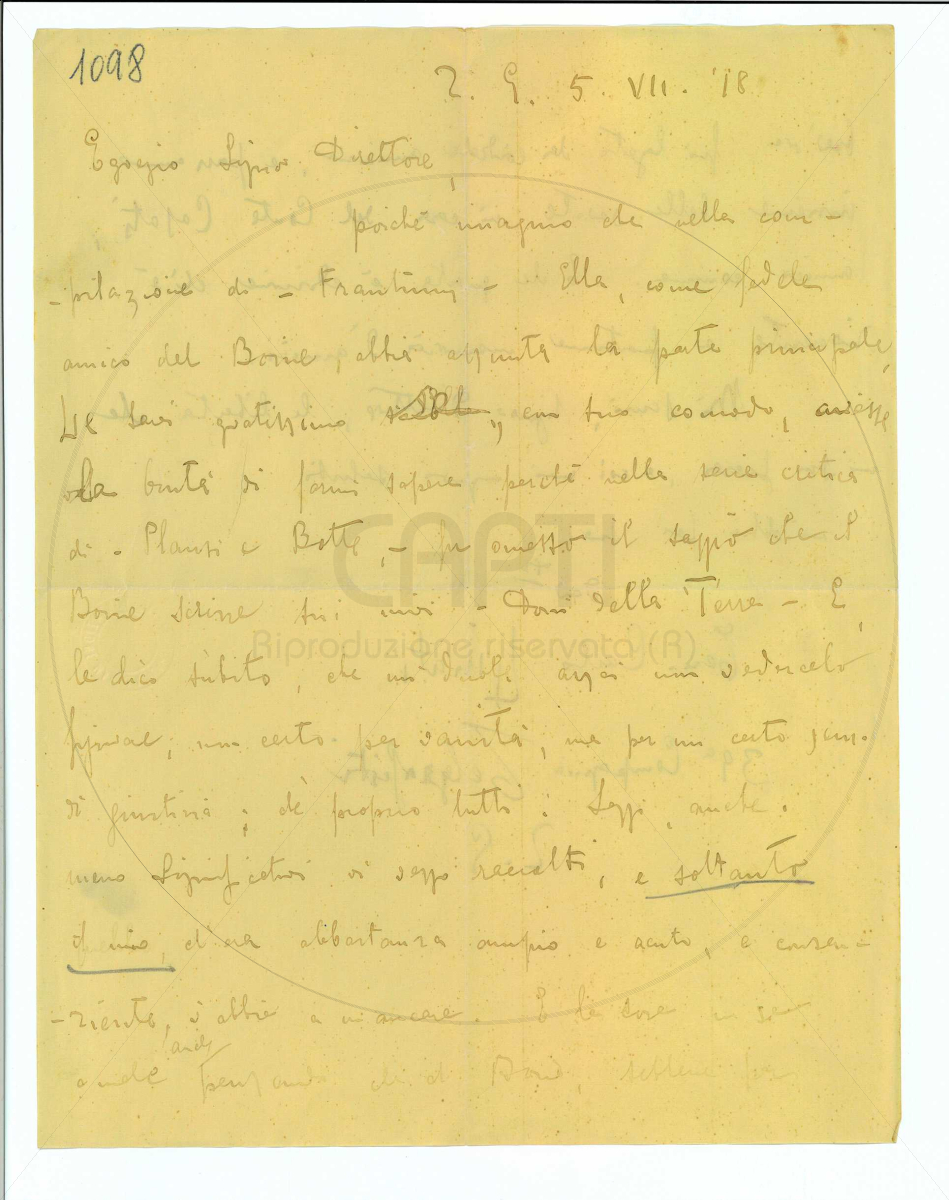 1098
Z. G. 5. VII. '18
Egregio Signor Direttore,
poiché immagino che nella com-
-pilazione di - Frantumi - Ella, come fedele
amico del Boine, abbia assunta la parte principale,
Le sarei gratissimo se, con suo comodo, avesse
la bontà di farmi sapere perché nella serie critica
di - Plausi e Botte, - fu omesso il saggio che il
Boine scrisse sui miei - Doni della Terra - E,
le dico subito, che mi duole assai non vedercelo
figurare, non certo per vanità, ma per un certo senso
di giustizia; ché proprio tutti i saggi, anche i
meno significativi vi veggo raccolti, e soltanto
il mio, ch'era abbastanza ampio e acuto, e
-ziente, v'abbia a mancare. E le
anche pensando che il Boine, sebbene
CAPTI
Riproduzione riservata (R)